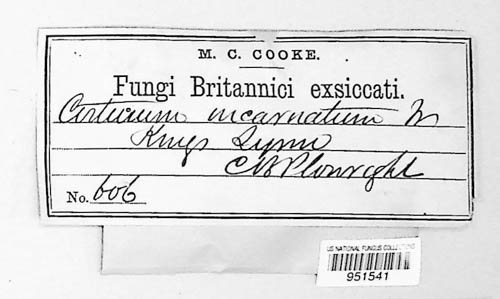 M. C. COOKE.
Fungi Britannici exsiccati.
Corticium incarnatum Fr
Kings Lynn
C B Plowright
No. 606
US NATIONAL FUNGUS COLLECTIONS
951541